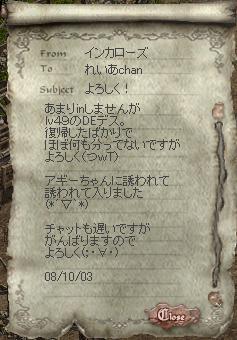 From インカローズ
To れいあchan
Subject よろしく！
あまりinしませんが
lv49のDEデス。
復帰したばかりで
ほぼ何も分ってないですが
よろしく(つwT)
アギーちゃんに誘われて
誘われて入りました
(*´▽`*)
チャットも遅いですが
がんばりますので
よろしく(；・∀・)
08/10/03
Close